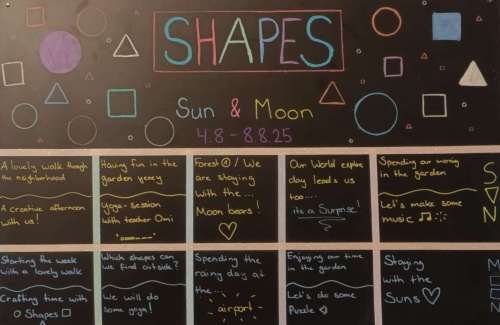 SHAPES
Sun & Moon
4.8 - 8.8.25
A lovely walk though
the neighborhood
A creative afternoon
with us!
Having fun in the
garden yeeey
Yoga-session
with teacher Omi
Forest / We
are staying
with the...
Moon bears!
Our World explore
day leads us
too....
its a Surprise!
Spending our morning
in the garden
Let's make some
music
SUN
Starting the week
with a lovely walk
Crafting time with
Shapes
Which shapes can
we find outside?
We will do
some yoga!
Spending the
rainy day at
the...
airport
Enjoying our time
in the garden
Let's do some
Puzzle
Staying
with the
Suns